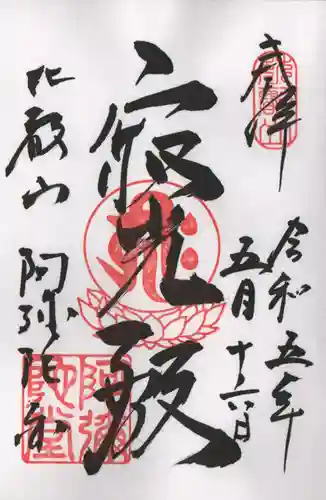 奉拝
令和五年
五月十六日
寂光殿
比叡山 阿弥陀堂
阿彌陀堂